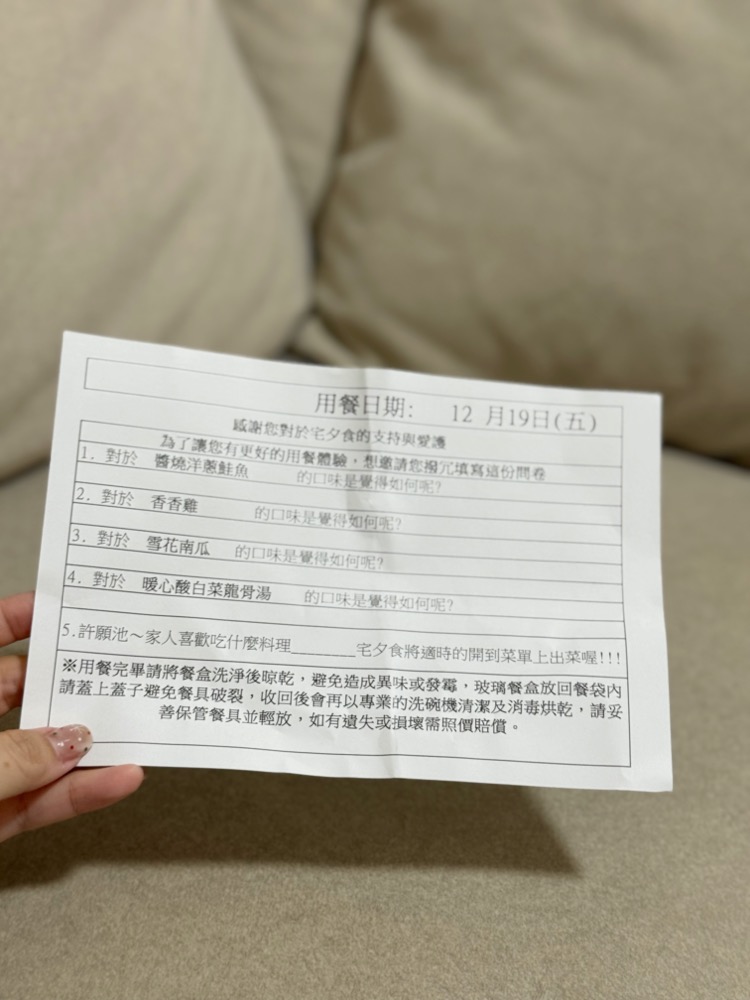 用餐日期: 12 月19日(五)
感謝您對於宅夕食的支持與愛護
為了讓您有更好的用餐體驗，想邀請您撥冗填寫這份問卷
1. 對於 醬燒洋蔥鮭魚 的口味是覺得如何呢?
2. 對於 香香雞 的口味是覺得如何呢?
3. 對於 雪花南瓜 的口味是覺得如何呢?
4. 對於 暖心酸白菜龍骨湯 的口味是覺得如何呢?
5.許願池～家人喜歡吃什麼料理________宅夕食將適時的開到菜單上出菜喔!!!
※用餐完畢請將餐盒洗淨後晾乾，避免造成異味或發霉，玻璃餐盒放回餐袋內
請蓋上蓋子避免餐具破裂，收回後會再以專業的洗碗機清潔及消毒烘乾，請妥
善保管餐具並輕放，如有遺失或損壞需照價賠償。